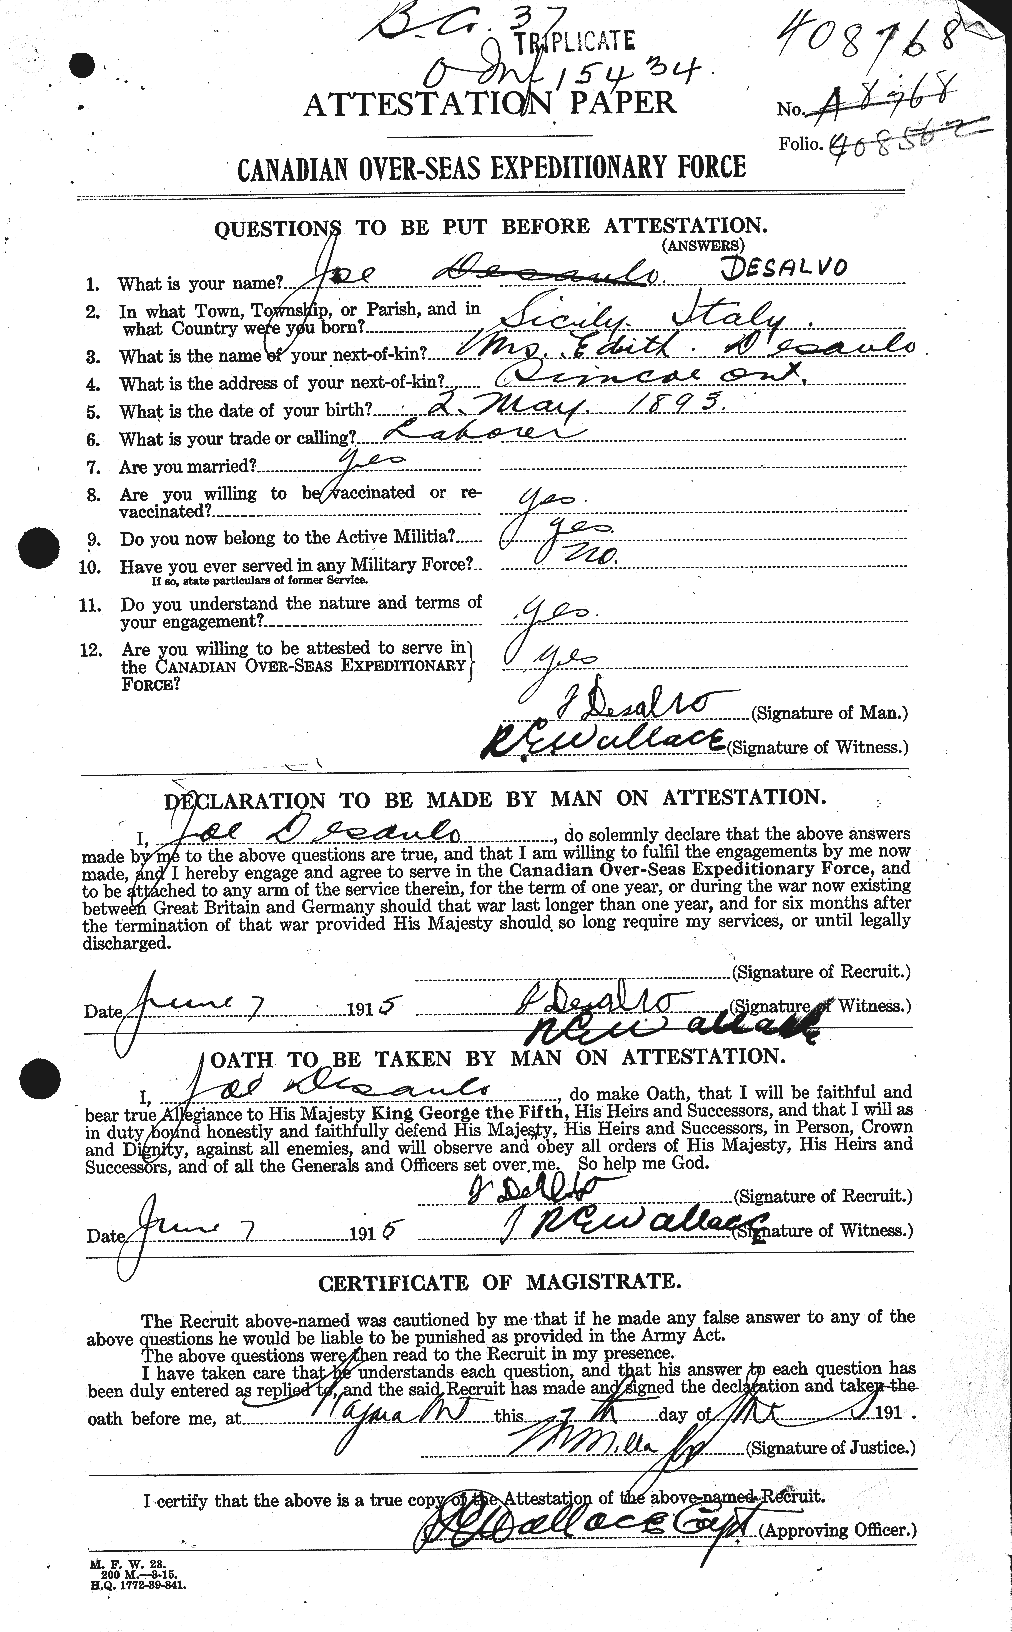 B.C. 37
TRIPLICATE
408768
15434.
ATTESTATION PAPER
No. A8768
Folio. 408562
CANADIAN OVER-SEAS EXPEDITIONARY FORCE
QUESTIONS TO BE PUT BEFORE ATTESTATION.
(ANSWERS)
1. What is your name? Joe Desaulo. DESALVO
2. In what Town, Township, or Parish, and in
what Country were you born? Sicily. Italy.
3. What is the name of your next-of-kin? Mrs. Edith. Desaulo
4. What is the address of your next-of-kin? Simcoe Ont.
5. What is the date of your birth? 2. May. 1893.
6. What is your trade or calling? Laborer
7. Are you married? Yes
8. Are you willing to be vaccinated or re-
vaccinated? Yes.
9. Do you now belong to the Active Militia? Yes.
10. Have you ever served in any Military Force? No.
If so, state particulars of former Service.
11. Do you understand the nature and terms of
your engagement? Yes.
12. Are you willing to be attested to serve in
the CANADIAN OVER-SEAS EXPEDITIONARY
FORCE? Yes
J Desalvo (Signature of Man.)
R.E Wallace (Signature of Witness.)
DECLARATION TO BE MADE BY MAN ON ATTESTATION.
I, Joe Desaulo, do solemnly declare that the above answers
made by me to the above questions are true, and that I am willing to fulfil the engagements by me now
made, and I hereby engage and agree to serve in the Canadian Over-Seas Expeditionary Force, and
to be attached to any arm of the service therein, for the term of one year, or during the war now existing
between Great Britain and Germany should that war last longer than one year, and for six months after
the termination of that war provided His Majesty should so long require my services, or until legally
discharged.
(Signature of Recruit.)
Date June 7 1915 J Desalvo (Signature of Witness.)
R E Wallace
OATH TO BE TAKEN BY MAN ON ATTESTATION.
I, Joe Desaulo, do make Oath, that I will be faithful and
bear true Allegiance to His Majesty King George the Fifth, His Heirs and Successors, and that I will as
in duty bound honestly and faithfully defend His Majesty, His Heirs and Successors, in Person, Crown
and Dignity, against all enemies, and will observe and obey all orders of His Majesty, His Heirs and
Successors, and of all the Generals and Officers set over me. So help me God.
(Signature of Recruit.)
Date June 7 1915 R E Wallace (Signature of Witness.)
CERTIFICATE OF MAGISTRATE.
The Recruit above-named was cautioned by me that if he made any false answer to any of the
above questions he would be liable to be punished as provided in the Army Act.
The above questions were then read to the Recruit in my presence.
I have taken care that he understands each question, and that his answer to each question has
been duly entered as replied to, and the said Recruit has made and signed the declaration and taken the
oath before me, at this 7th day of 191 .
(Signature of Justice.)
I certify that the above is a true copy of the Attestation of the above-named Recruit.
R E Wallace Capt (Approving Officer.)
M. F. W. 23.
200 M.—3-15.
H.Q. 1772-39-841.